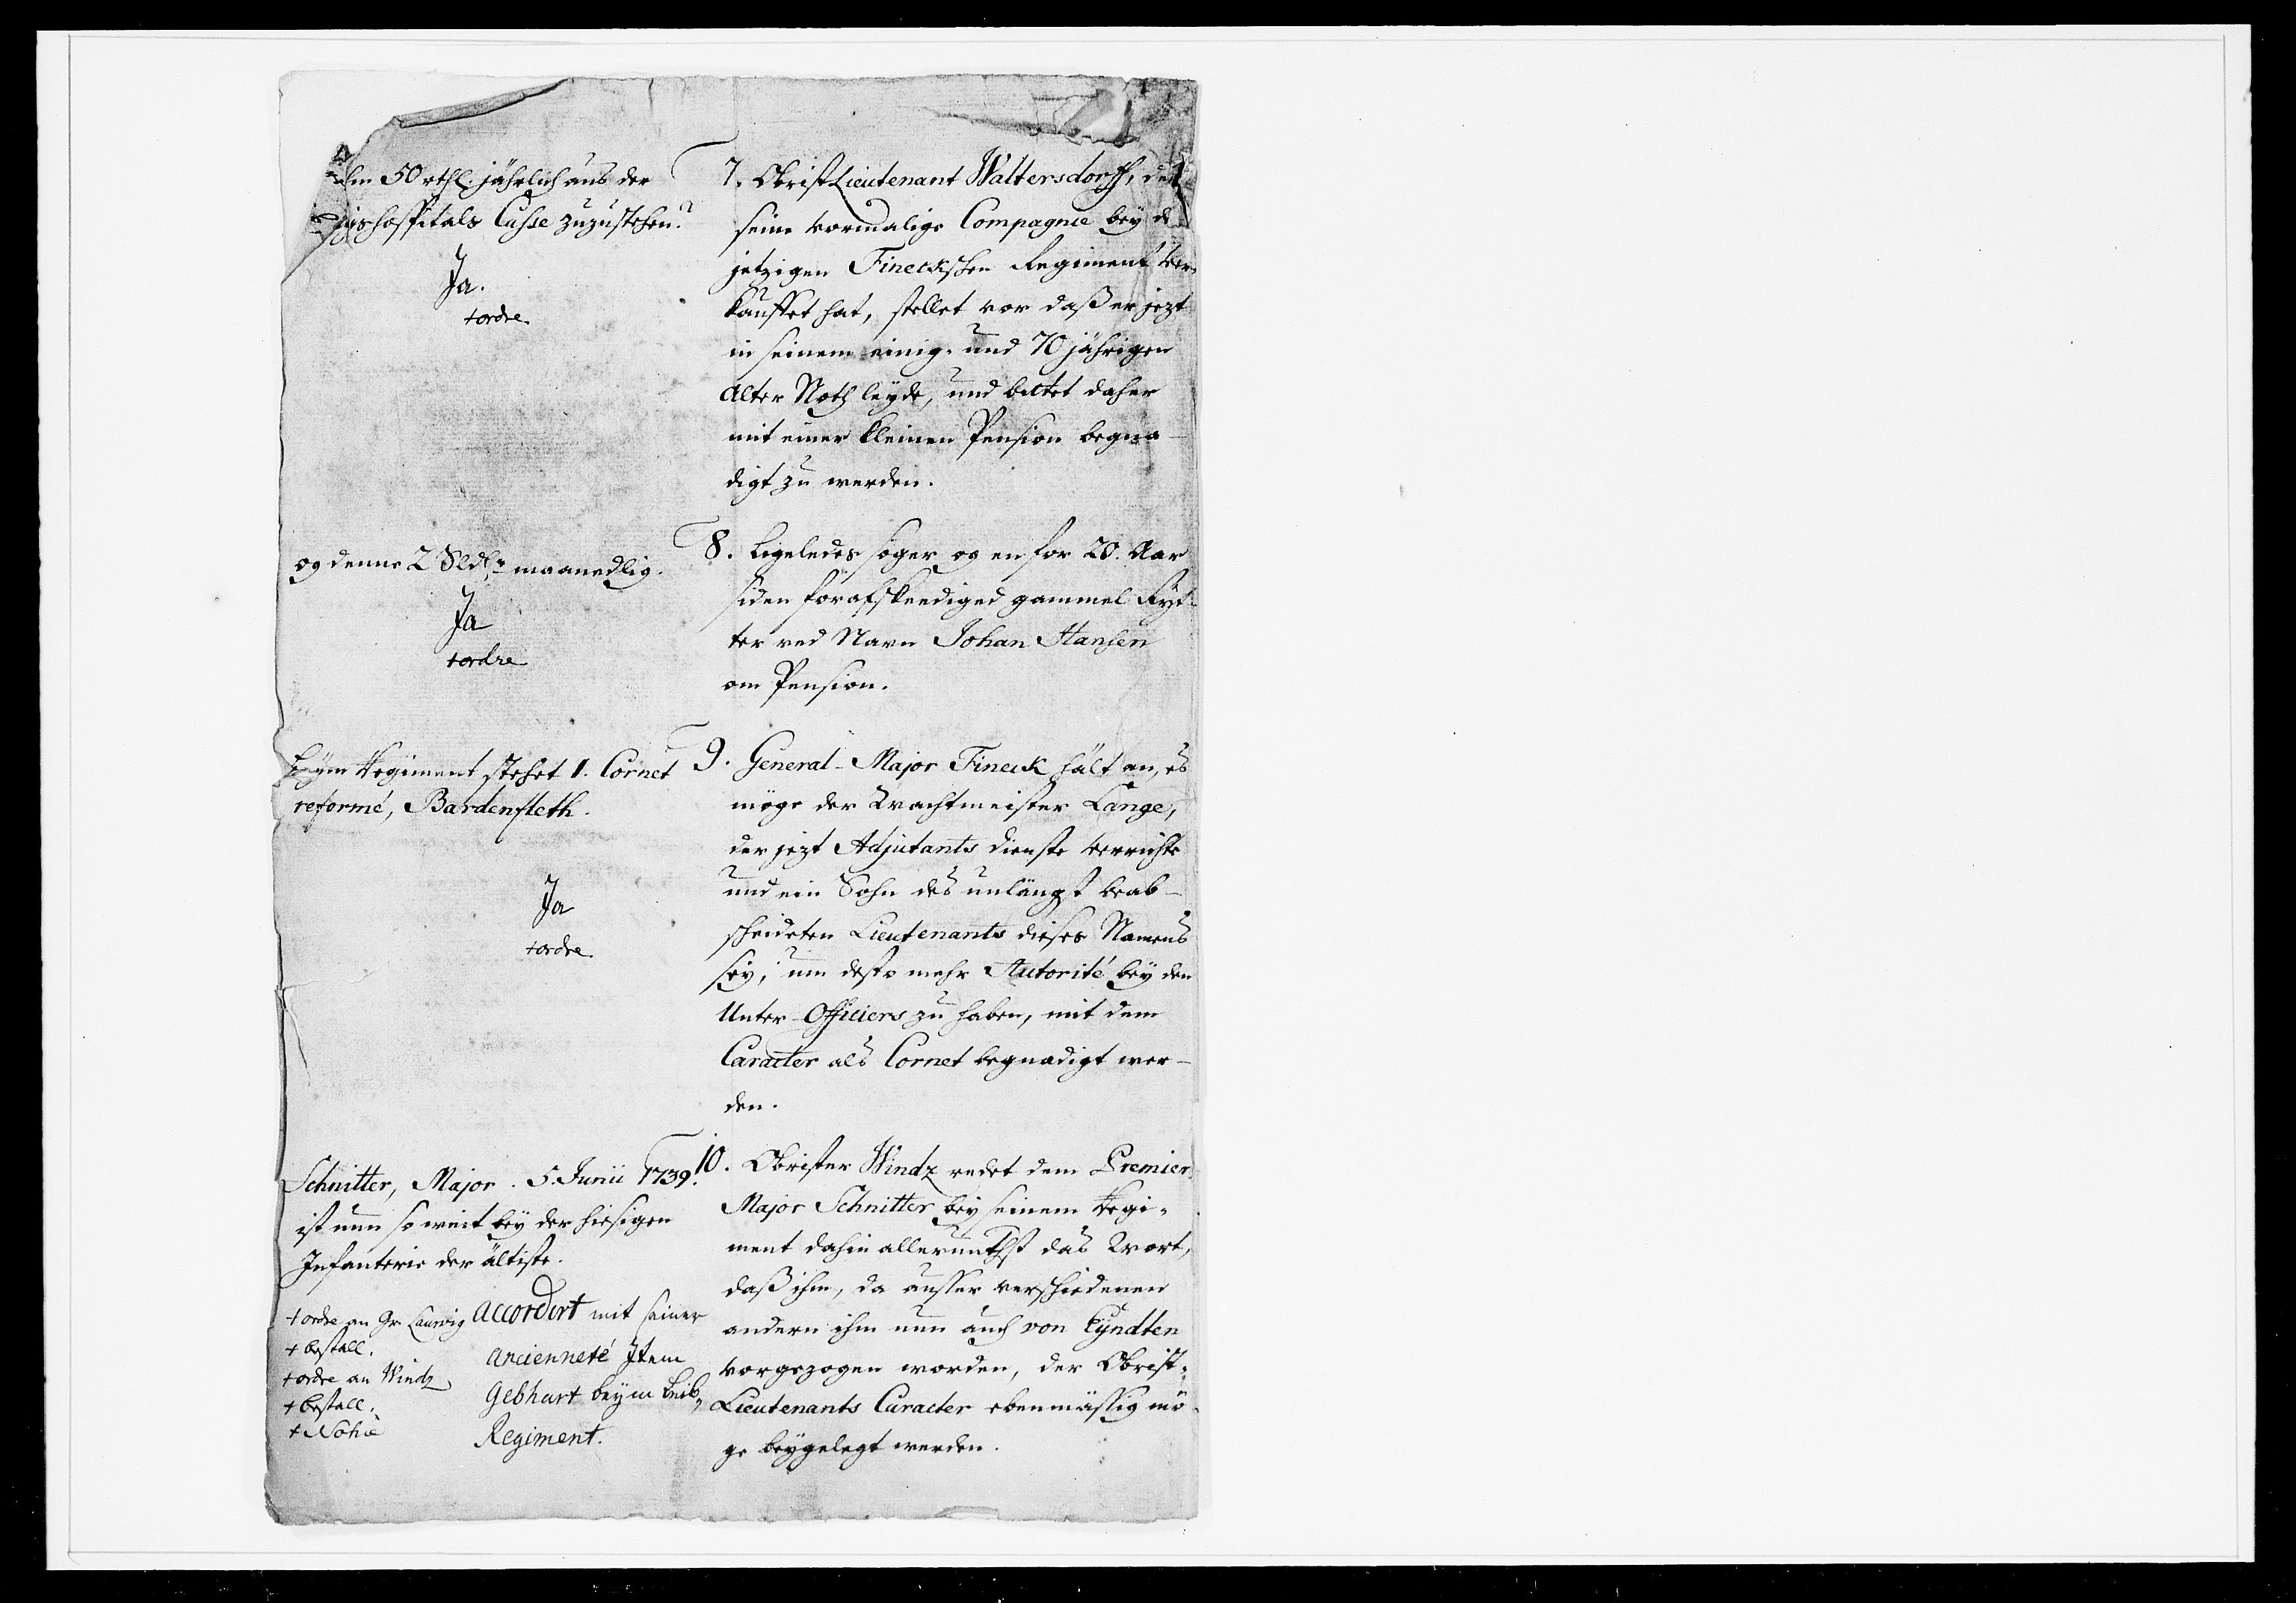 ihm 50 rthl. jährlich aus der
hospitals Casse zuzustehen?
Ja.
+ordre
7. ObristLieutenant Waltersdorff, der
seine vormalige Compagnie bey de
jetzigen Fineckschen Regiment ver-
kauffet hat, stellet vor daß er jezt
in seinem einig- und 70 jährigen
Alter Noth leyde, und bittet daher
mit einer kleinen Pension begna-
digt zu werden.
og denne 2 Sldr maanedlig.
Ja
+ordre
8. Ligeledes söger og en for 20. Aar
siden forafskeediged gammel Ryt-
ter ved Navn Johan Hansen
om Pension.
Beym Regiment stehet 1. Cornet
reformé, Bardenfleth.
Ja
+ordre
9. General-Major Fineck hält an, es
möge der Wachtmeister Lange,
der jezt Adjutants dienste verrichte
und ein Sohn des unlängst verab-
scheideten Lieutenants dieses Namens
sey, um desto mehr Autorité bey den
Unter-Officiers zu haben, mit dem
Caracter als Cornet begnadigt wer-
den.
Schnitter, Major. 5. Junii 1739.
ist nun so weit bey der hiesigen
Infanterie der älteste.
accordirt mit seiner
ancienneté Item
Gebhart beym Leib-
Regiment.
+ordre an Gr. Laurvig
+bestall.
+ordre an Windz
+bestall.
10. Obrister Windz redet dem Premier
Major Schnitter bey seinem Regi-
ment dahin allerunthst das Wort,
daß ihm, da ausser verschiedenen
andern ihm nun auch von Eyndten
vorgezogen worden, der Obrist-
Lieutenants Caracter ebenmässig mö-
ge beygelegt werden.